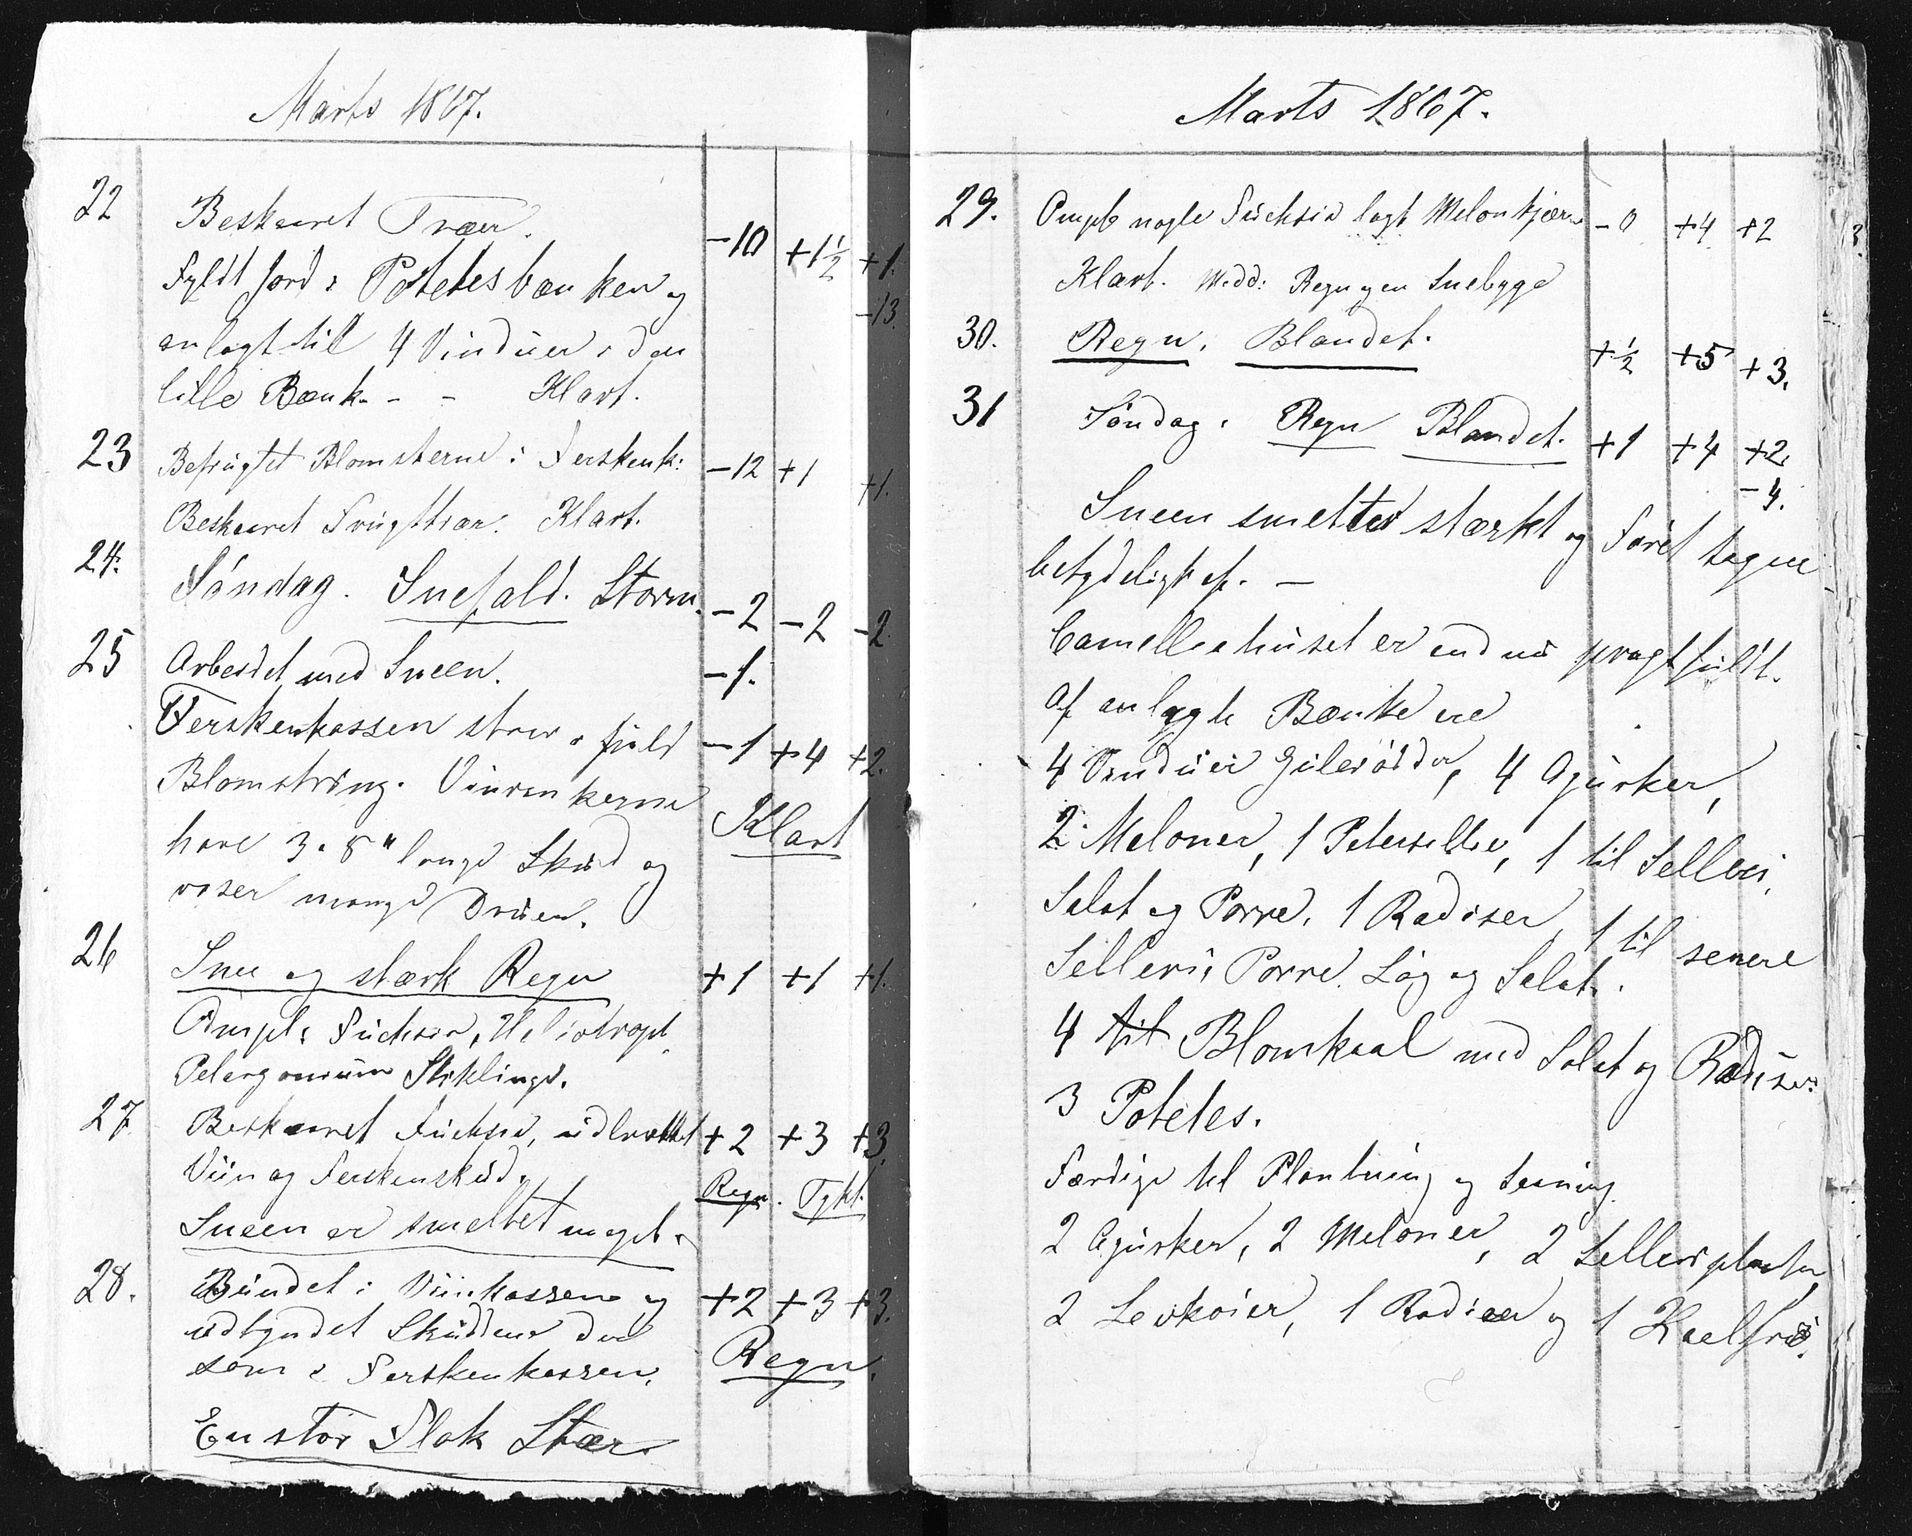 Marts 1867.
22 Beskaaret Træer.
Fyldt Jord i Potetesbænken og -10 +1½ +1.
anlagt til 4 Vinduer i den -13.
lille Bænk - - Klart.
23 Befrugtet Blomsterne i Ferskenk: -12 +1 +1.
Beskaaret Frugttrær. Klart.
24. Søndag. Snefald. Storm. -2 -2 -2
25 Arbeidet med Sneen. -1.
Ferskenkassen staar i fuld -1 +4 +2.
Blomstring. Vinrankerne
have 3 a 8" lange Skud og Klart
viser mange Druer.
26 Snee og stærk Regn +1 +1 +1.
Ompl: Fuchsia, Heliotrope
Pelargonium Stiklinge.
27 Beskaaret Fuchsia, udbrækket +2 +3 +3.
Viin og Ferskenskud. Regn. Tykt.
Sneen er smeltet meget.
28. Bundet i Viinkassen og +2 +3 +3.
udtyndet Skuddene der
som i Ferskenkassen. Regn.
En stor Flok Stær.
Marts 1867.
29. Ompl: nogle Fuchsia lagt Melonkjærne -0 +4 +2
Klart. Midd: Regn og en Snebyge
30. Regn. Blandet. +½ +5 +3.
31 Søndag. Regn Blandet. +1 +4 +2.
-4.
Sneen smelter stærkt og Føret tager
betydeligt af. -
Camelliahuset er endnu pragtfuldt.
Af anlagte Bænke ere
4 Vinduer Gulerødder, 4 Agurker,
2 Meloner, 1 Petersillie, 1 til Selleri,
Salat og Porre. 1 Radiser, 1 til senere
Selleri, Porre. Løg og Salat.
4 til Blomkaal med Salat og Radiser.
3 Potetes.
Færdige til Plantning og Saaning
2 Agurker, 2 Meloner, 2 Selleriplanter
2 Levkoier, 1 Radiser og 1 Kaalfrø.